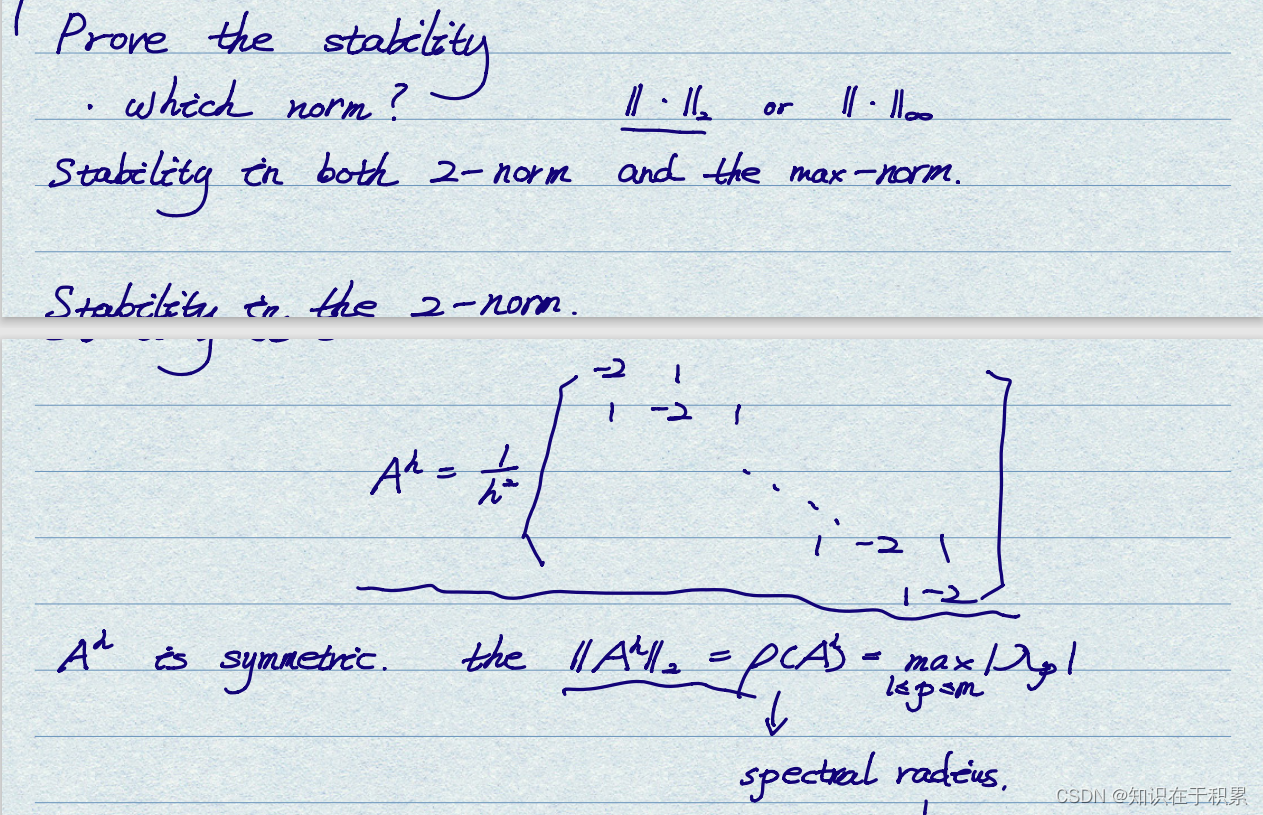 Prove the stability
· which norm? ‖·‖₂ or ‖·‖∞
Stability in both 2-norm and the max-norm.
Stability in the 2-norm.
-2 1
1 -2 1
Aʰ = 1/h²
⋱
1 -2 1
1 -2
Aʰ is symmetric. the ‖Aʰ‖₂ = ρ(Aʰ) = max |λp|
1≤p≤m
↓
spectral radius.
CSDN @知识在于积累